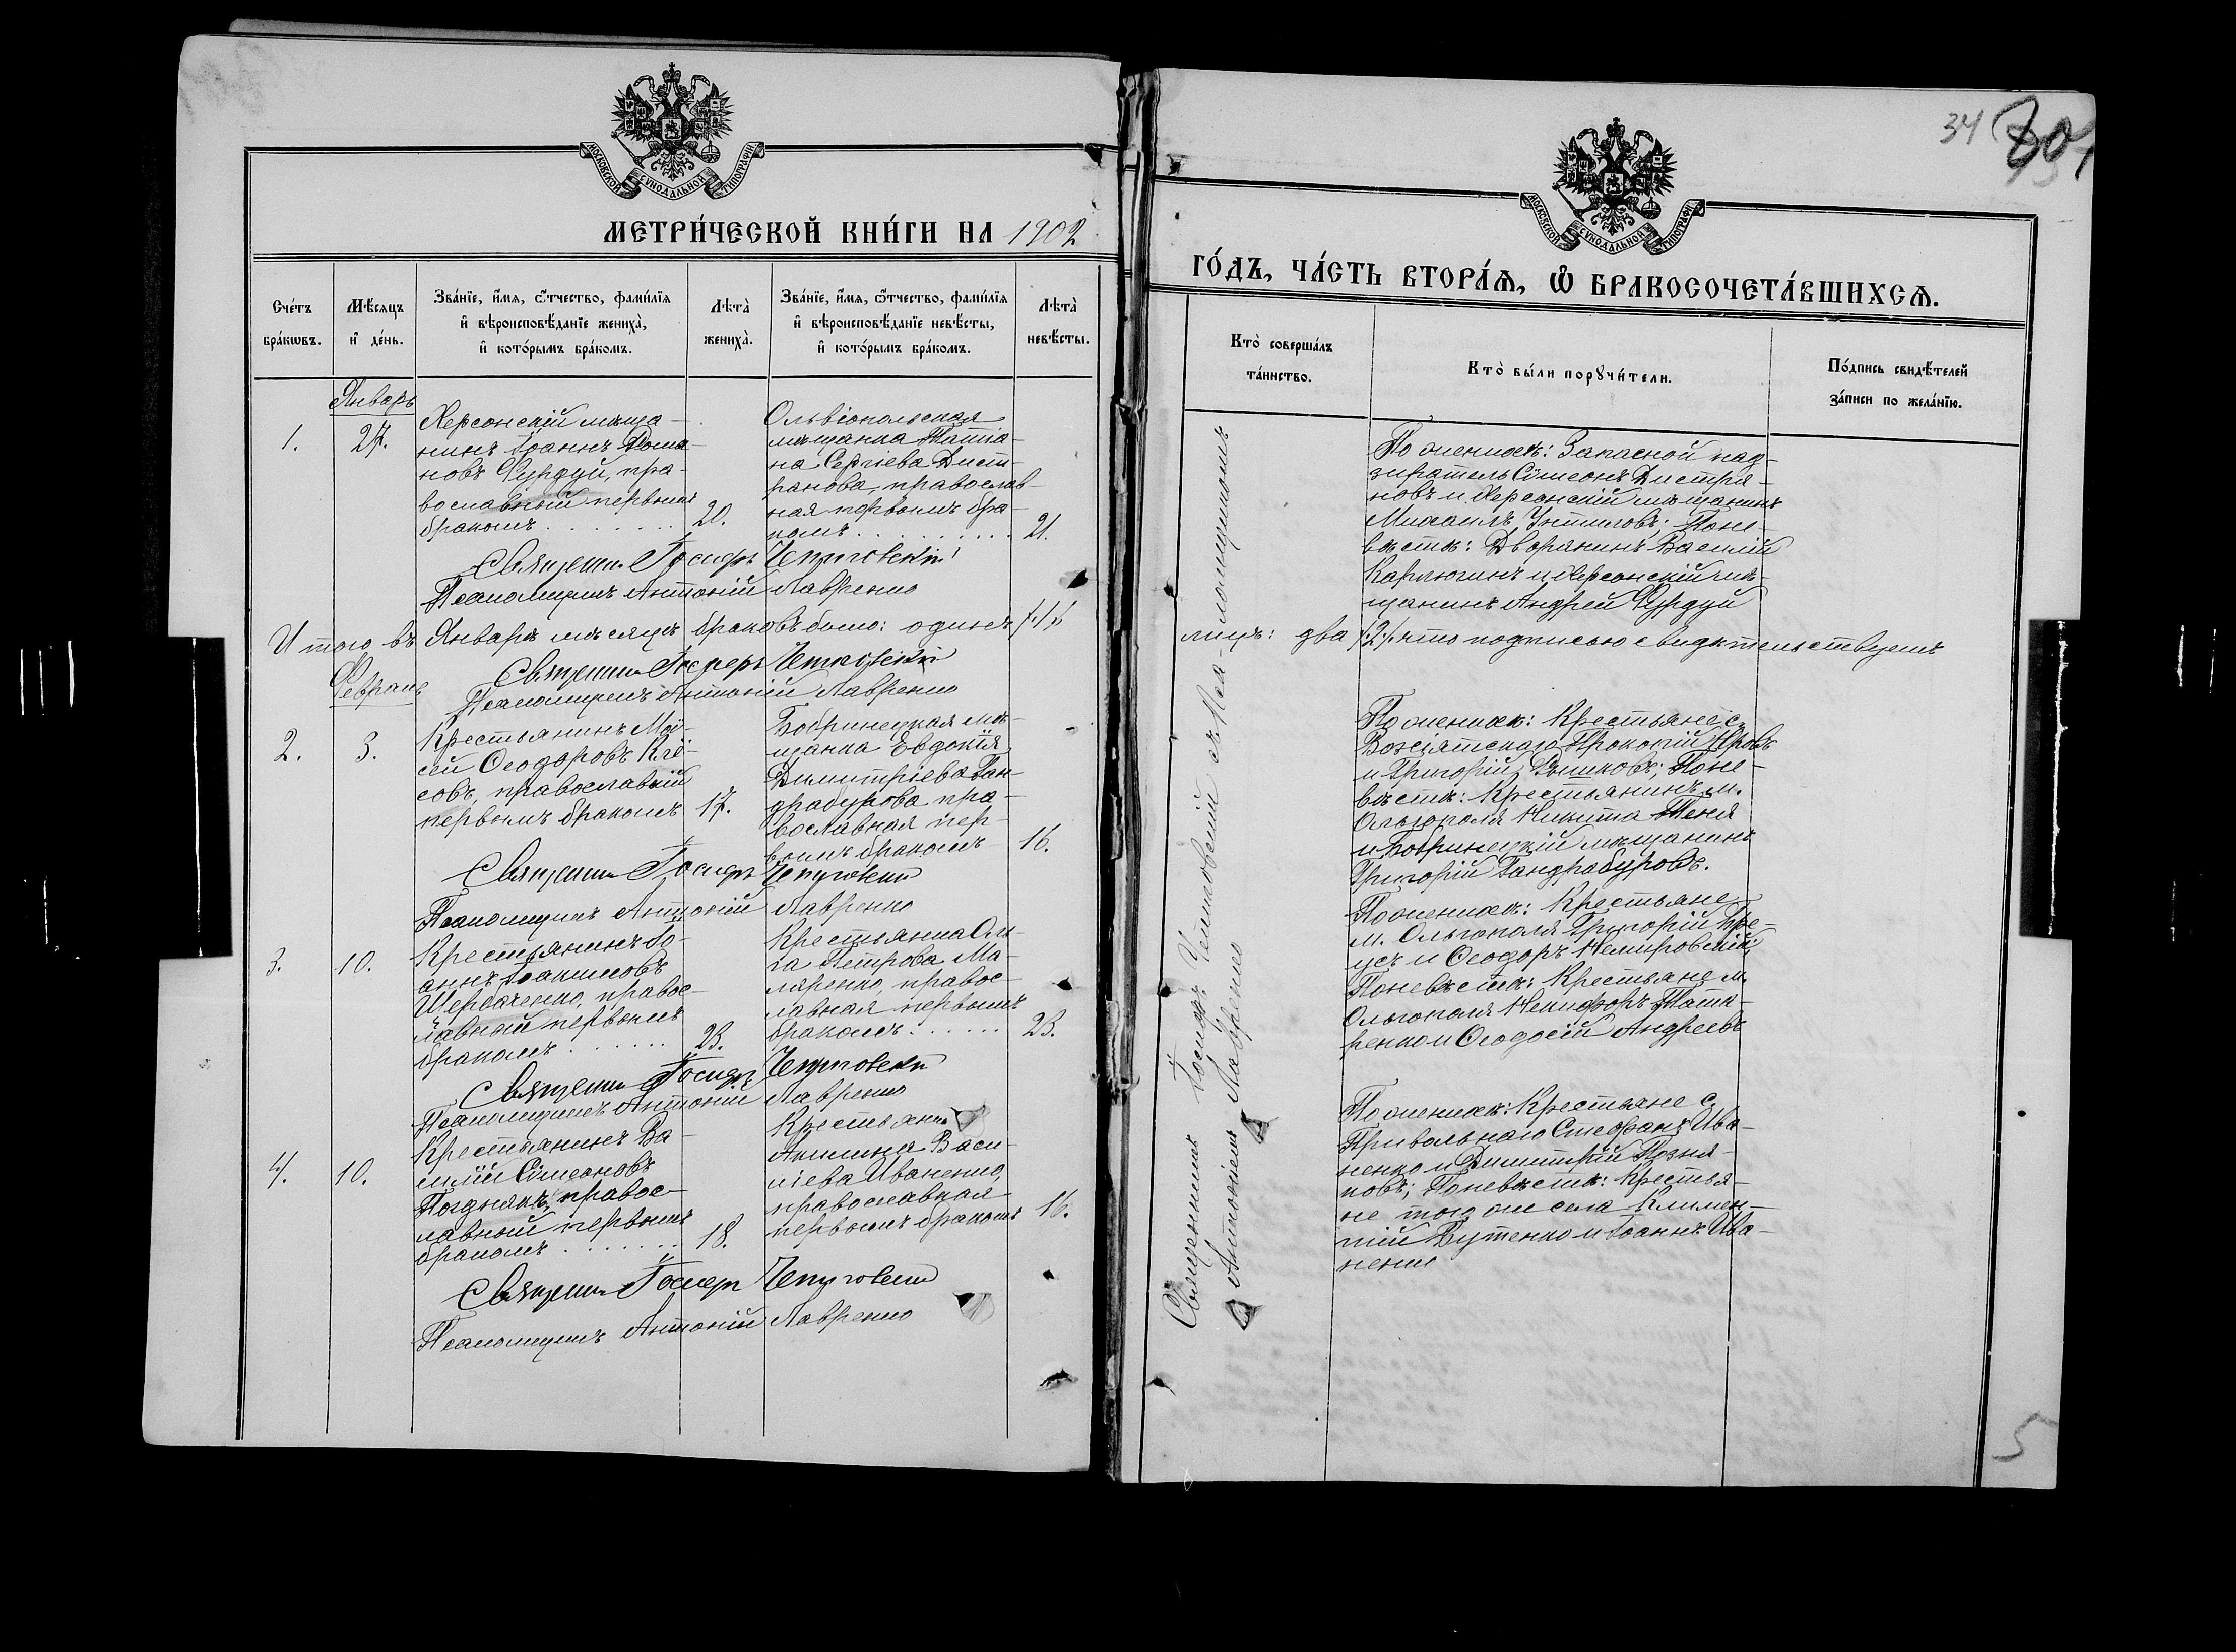 МОСКОВСКОЙ СУНОДАЛЬНОЙ ТИПОГРАФІИ
МЕТРИ́ЧЕСКОЙ КНИ́ГИ НА 1902
Сче́тъ бра́кѡвъ.
Мѣ́сяцъ и҆ де́нь.
Зва́нїе, и҆́мѧ, ѻ҆́тчество, фами́лїѧ
и҆ вѣроисповѣ́данїе жениха̀,
и҆ кото́рымъ бра́комъ.
Лѣта̀ жениха̀.
Зва́нїе, и҆́мѧ, ѻ҆́тчество, фами́лїѧ
и҆ вѣроисповѣ́данїе невѣ́сты,
и҆ кото́рымъ бра́комъ.
Лѣта̀ невѣ́сты.
Январь
1.
27.
Херсонскій мѣща-
нинъ Іоаннъ Рома-
новъ Фурдуй, пра-
вославный первымъ
бракомъ . . . . . . . 20.
Ольвіопольская
мѣщанка Татіа-
на Сергіева Дист-
ранова, православ-
ная первымъ бра-
комъ . . . . . . . . . 21.
Священн. Іосифъ
Псаломщикъ Антоній Лавренко
Итого въ Январѣ мѣсяцѣ браковъ было: одинъ /.1./
Священн. Іосифъ
Псаломщикъ Антоній Лавренко
Февраль
2.
3.
Крестьянинъ Мой-
сей Ѳеодоровъ Кле-
совъ, православный
первымъ бракомъ 17.
Бобринецкая мѣ-
щанка Евдокія
Димитріева Ган-
драбурова пра-
вославная пер-
вымъ бракомъ 16.
Священн. Іосифъ
Псаломщикъ Антоній Лавренко
3.
10.
Крестьянинъ Іо-
аннъ Іоакимовъ
Щербаченко, правос-
лавный первымъ
бракомъ . . . . . . 23.
Крестьянка Оль-
га Петрова Ма-
ляренко, правос-
лавная первымъ
бракомъ . . . . . . 23.
Священн. Іосифъ
Псаломщикъ Антоній Лавренко
4.
10.
Крестьянинъ Ва-
силій Сімеоновъ
Позднякъ, правос-
лавный первымъ
бракомъ . . . . . . . 18.
Крестьянка
Акилина Васи-
ліева Иваненко,
православная
первымъ бракомъ 16.
Священн. Іосифъ
Псаломщикъ Антоній Лавренко
34
МОСКОВСКОЙ СУНОДАЛЬНОЙ ТИПОГРАФІИ
ГО́ДЪ, ЧА́СТЬ ВТОРА́Ѧ, Ѡ҆ БРАКОСОЧЕТА́ВШИХСѦ.
Кто̀ соверша́лъ
та́инство.
Кто̀ бы́ли порꙋчи́тели.
По́дпись свидѣ́телей
за́писи по жела́нїю.
Священникъ Іосифъ съ псаломщикомъ
Антоніемъ Лавренко
По женихѣ: Запасной над-
зиратель Сімеонъ Дистря-
новъ и Херсонскій мѣщанинъ
Михаилъ; По не-
вѣстѣ: Дворянинъ Василій
Карлюгинъ и Херсонскій мѣ-
щанинъ Андрей Фурдуй
лицъ: два /.2./ что подписью свидѣтельствуемъ
По женихѣ: Крестьяне с.
Возсіятскаго Прокопій
и Григорій; По не-
вѣстѣ: Крестьянинъ м.
Ольгополя Никита Теня
и Бобринецкій мѣщанинъ
Григорій Гандрабуровъ.
По женихѣ: Крестьяне
м. Ольгополя Григорій
и Ѳеодоръ Немировскій;
По невѣстѣ: Крестьяне м.
Ольгополя Никифоръ Тата-
ренко и Ѳеодосій Андреевъ
По женихѣ: Крестьяне с.
Привольнаго Стефанъ Ива-
ненко и Димитрій Позня-
ковъ; По невѣстѣ: Крестья-
не того же села Климен-
тій Дутенко и Іоаннъ Ива-
ненко
5